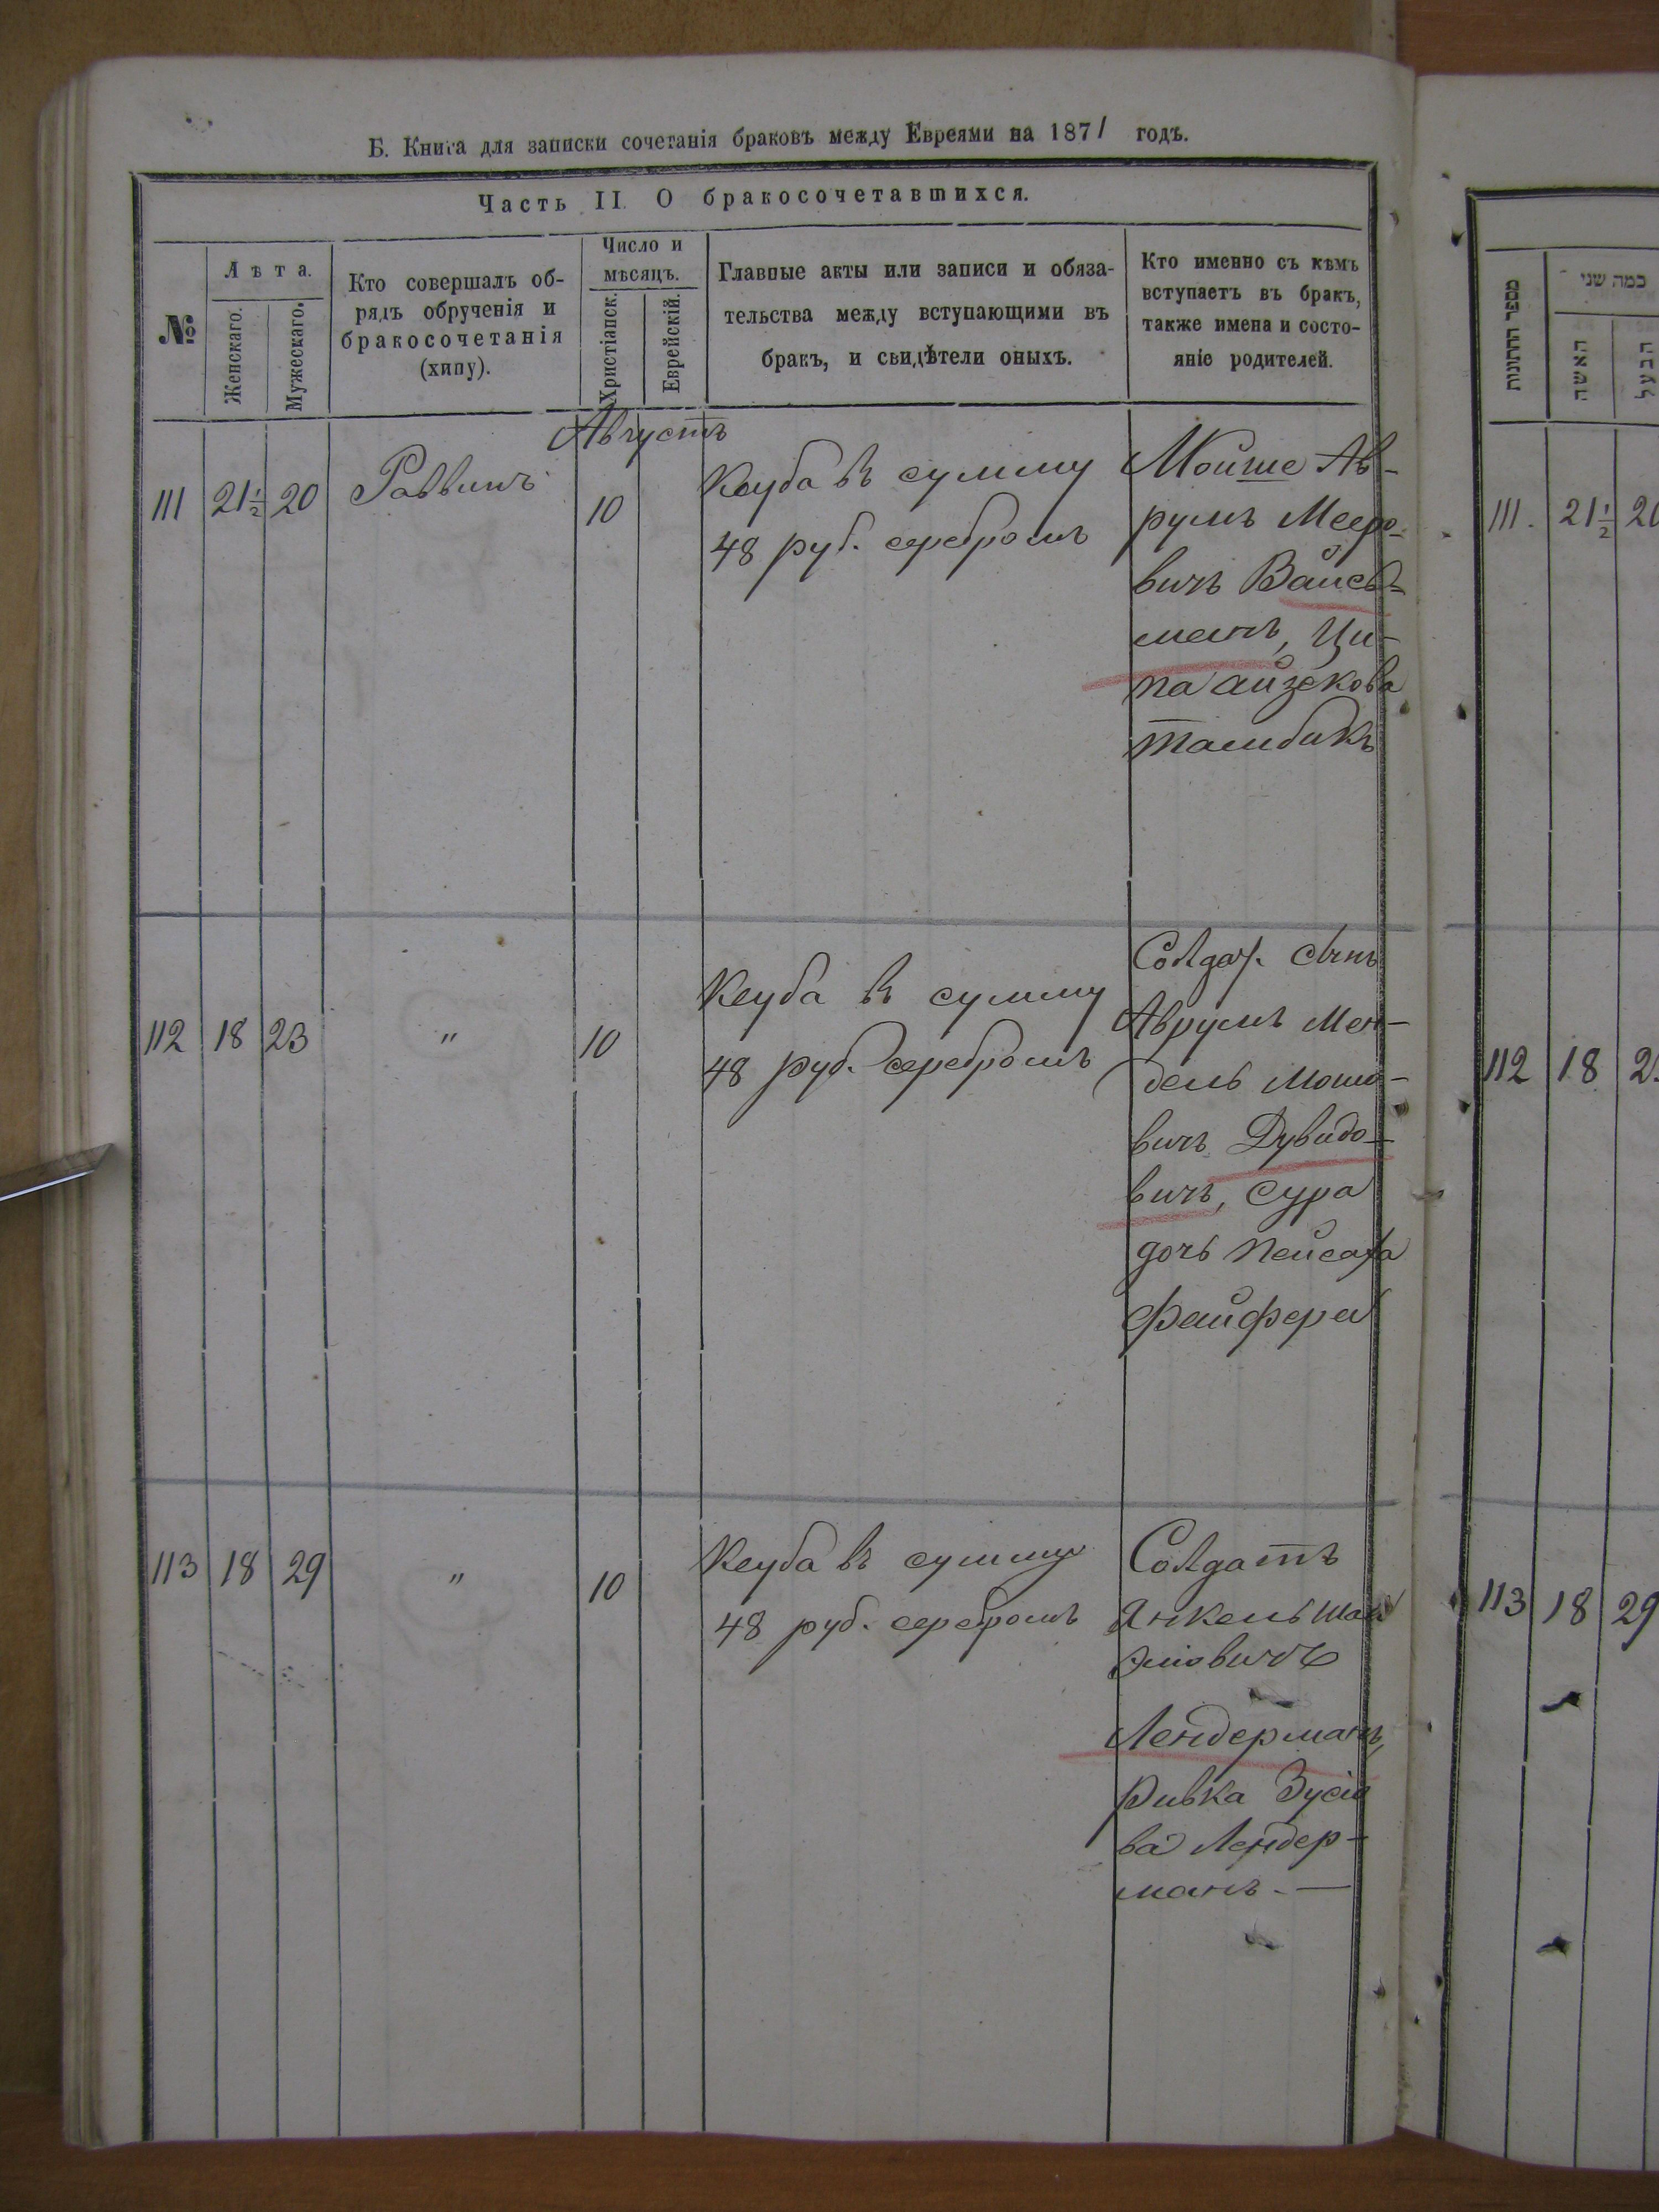 Б. Книга для записки сочетанія браковъ между Евреями на 1871 годъ.
Часть II. О бракосочетавшихся.
№
Лѣта.
Женскаго.
Мужескаго.
Кто совершалъ об-
рядъ обрученія и
бракосочетанія
(хипу).
Число и
мѣсяцъ.
Христіанск.
Еврейскій.
Главные акты или записи и обяза-
тельства между вступающими въ
бракъ, и свидѣтели оныхъ.
Кто именно съ кѣмъ
вступаетъ въ бракъ,
также имена и состо-
яніе родителей.
Августъ
111 21½ 20 Раввинъ 10
Кеуба въ сумму
48 руб. серебромъ
Мойше Ав-
румъ Меро-
вичъ Вайсъ-
манъ, Ци-
па Айзекова
Талибикъ
112 18 23 " 10
Кеуба въ сумму
48 руб. серебромъ
Солдат. сынъ
Аврумъ Мен-
дель Мошо-
вичъ Дувидо-
вичъ, Сура
дочь Пейсаха
Файфера
113 18 29 " 10
Кеуба въ сумму
48 руб. серебромъ
Солдатъ
Янкель
Лендерманъ,
Ривка Зусіо
ва Лендер-
манъ. —
מספר החתונות
כמה שני
האשה
הבעל
111. 21½ 20
112 18
113 18 29